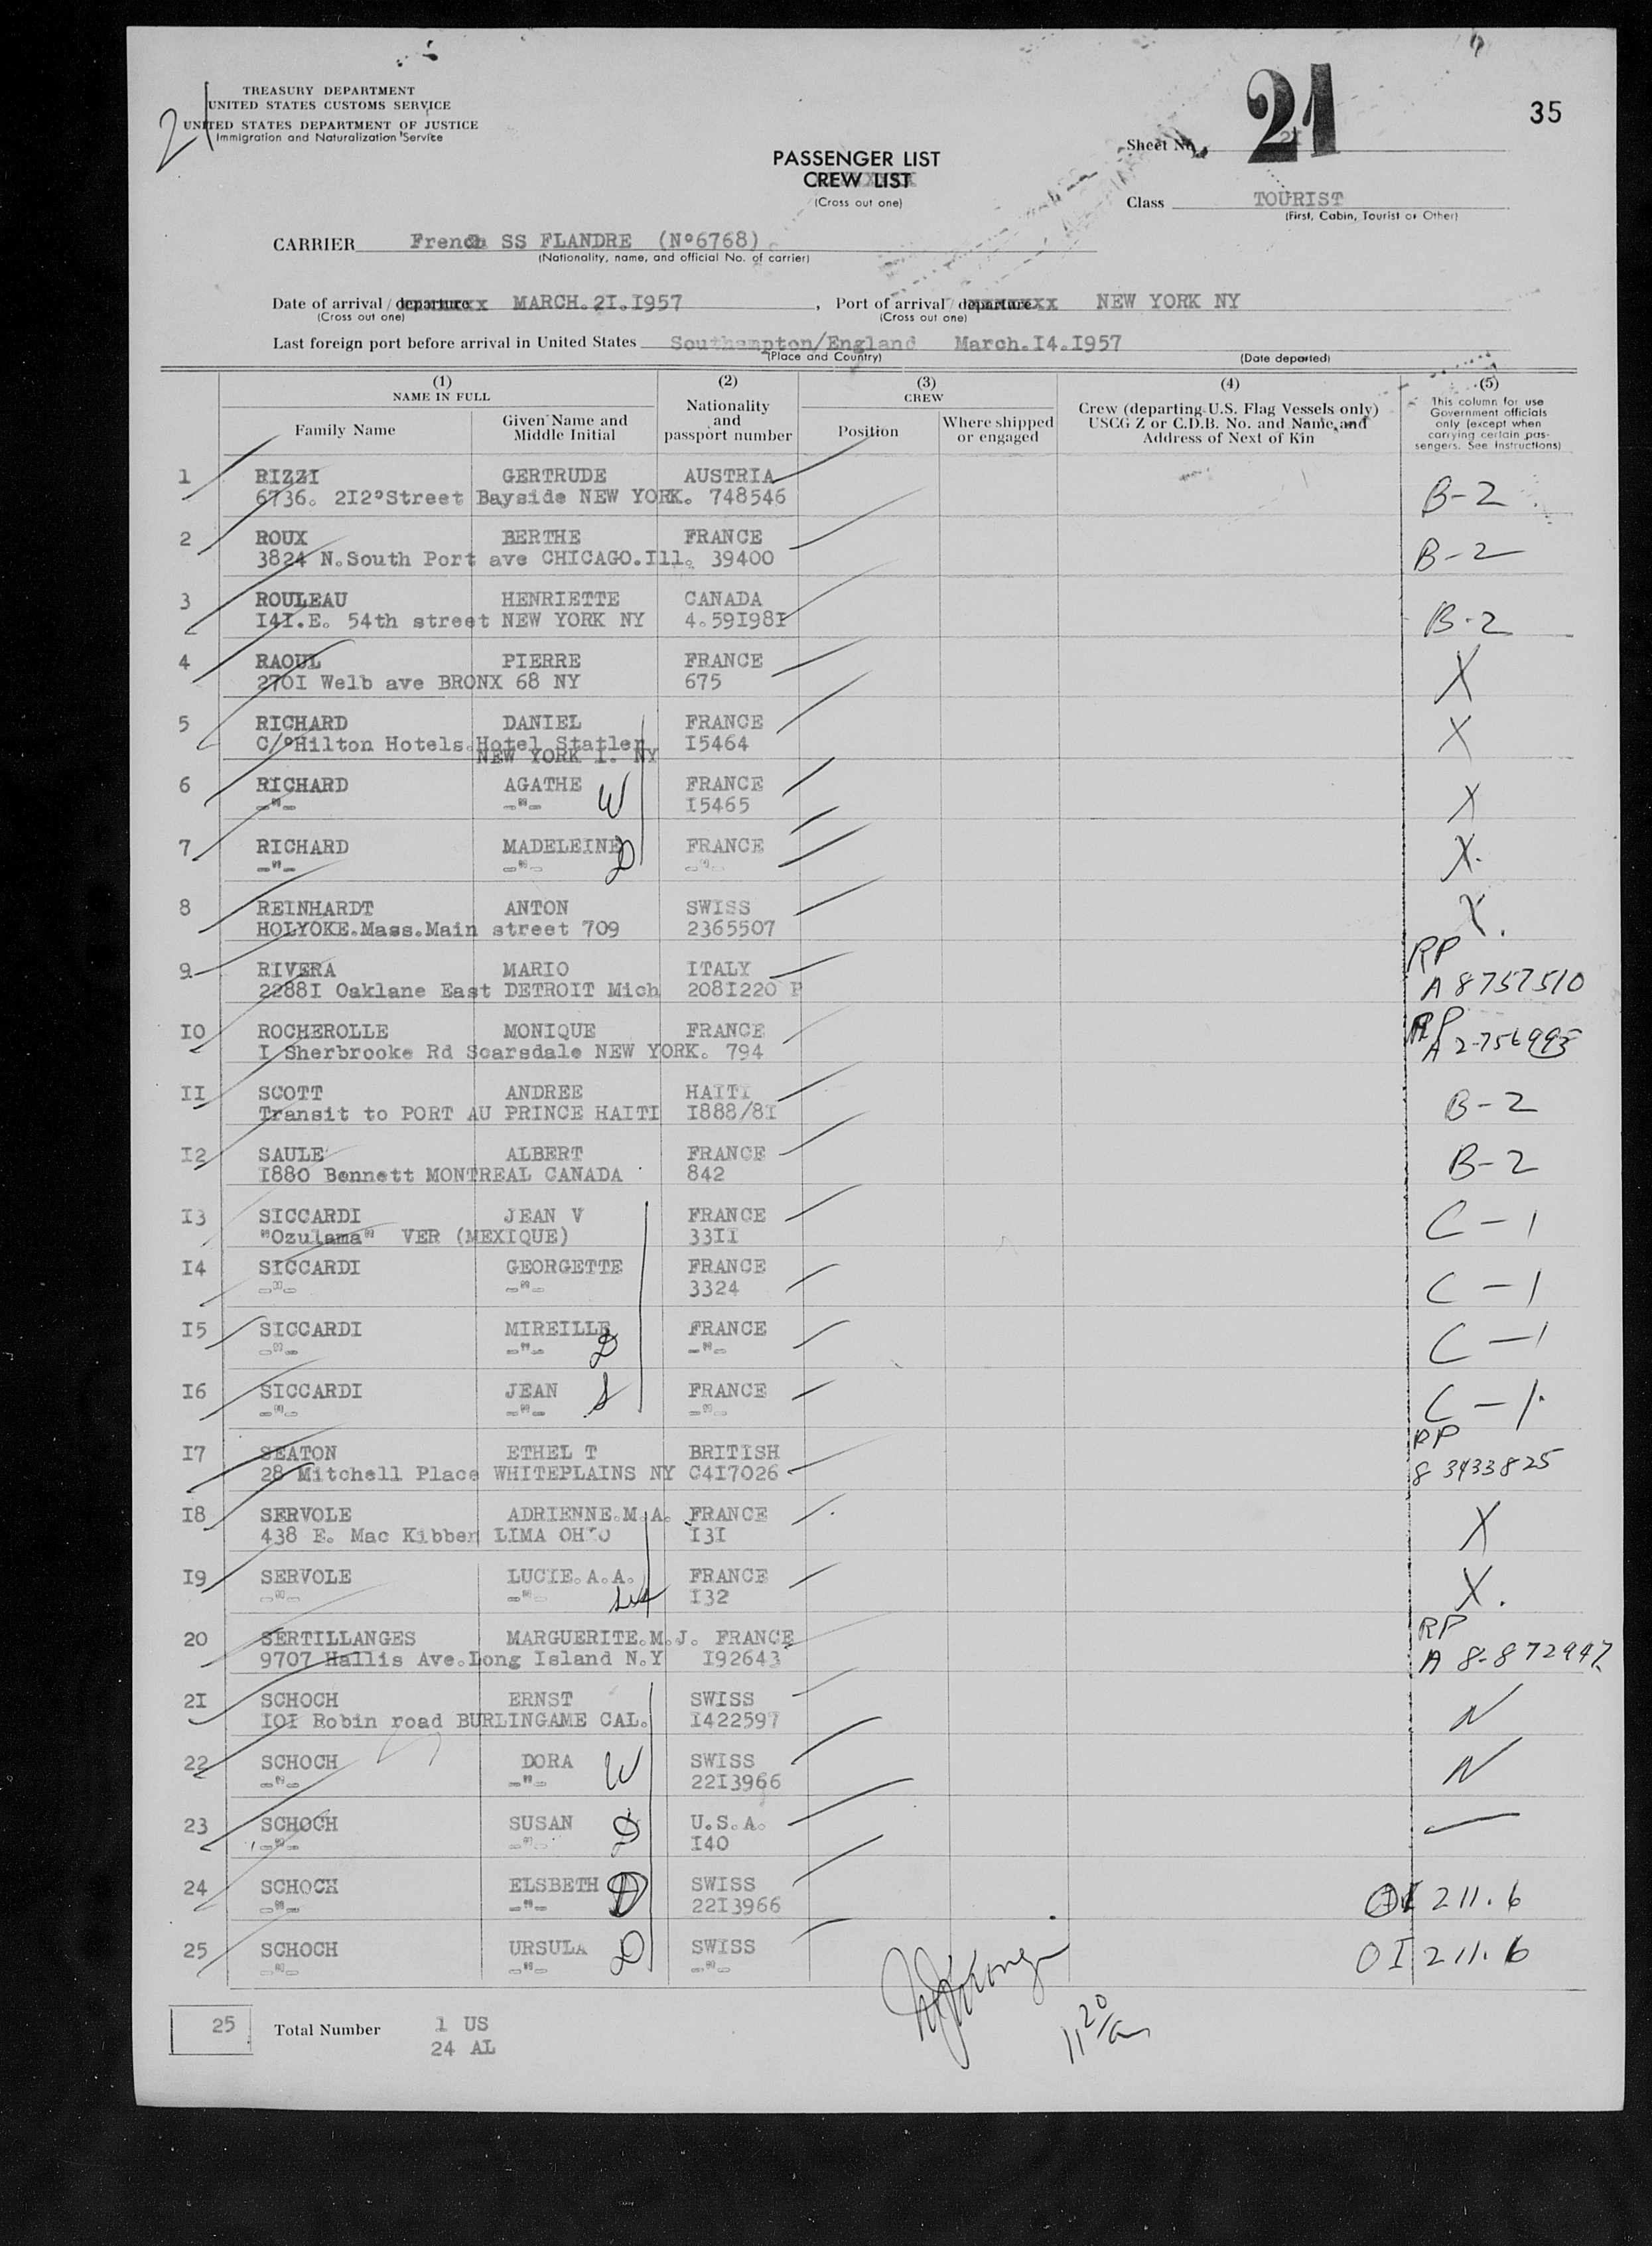 21
TREASURY DEPARTMENT
UNITED STATES CUSTOMS SERVICE
UNITED STATES DEPARTMENT OF JUSTICE
Immigration and Naturalization Service
PASSENGER LIST
CREW LIST
(Cross out one)
Sheet No. 21
35
Class TOURIST
(First, Cabin, Tourist or Other)
CARRIER French SS FLANDRE (N°6768)
(Nationality, name, and official No. of carrier)
Date of arrival / departure MARCH.2I.I957, Port of arrival / departure NEW YORK NY
(Cross out one) (Cross out one)
Last foreign port before arrival in United States Southampton/England March.I4.I957
(Place and Country) (Date departed)
(1) NAME IN FULL
Family Name
Given Name and Middle Initial
(2)
Nationality and passport number
(3) CREW
Position
Where shipped or engaged
(4)
Crew (departing U.S. Flag Vessels only)
USCG Z or C.D.B. No. and Name and
Address of Next of Kin
(5)
This column for use
Government officials
only (except when
carrying certain pas-
sengers. See Instructions)
1 RIZZI GERTRUDE AUSTRIA B-2
6736. 2I2°Street Bayside NEW YORK. 748546
2 ROUX BERTHE FRANCE B-2
3824 N.South Port ave CHICAGO.Ill. 39400
3 ROULEAU HENRIETTE CANADA B-2
I4I.E. 54th street NEW YORK NY 4.59I98I
4 RAOUL PIERRE FRANCE X
270I Welb ave BRONX 68 NY 675
5 RICHARD DANIEL FRANCE X
C/°Hilton Hotels.Hotel Statler I5464
NEW YORK I. NY
6 RICHARD AGATHE W FRANCE X
-"- -"- I5465
7 RICHARD MADELEINE D FRANCE X.
-"- -"- -"-
8 REINHARDT ANTON SWISS X.
HOLYOKE.Mass.Main street 709 2365507
9 RIVERA MARIO ITALY RP
2288I Oaklane East DETROIT Mich 208I220 P A 8757510
IO ROCHEROLLE MONIQUE FRANCE RP
I Sherbrooke Rd Scarsdale NEW YORK. 794 A 2-756993
II SCOTT ANDREE HAITI B-2
Transit to PORT AU PRINCE HAITI I888/8I
I2 SAULE ALBERT FRANCE B-2
I880 Bennett MONTREAL CANADA 842
I3 SICCARDI JEAN V FRANCE C-1
"Ozulama" VER (MEXIQUE) 33II
I4 SICCARDI GEORGETTE FRANCE C-1
-"- -"- 3324
I5 SICCARDI MIREILLE D FRANCE C-1
-"- -"- -"-
I6 SICCARDI JEAN S FRANCE C-1.
-"- -"- -"-
I7 SEATON ETHEL T BRITISH RP
28 Mitchell Place WHITEPLAINS NY C4I7026 8 3433825
I8 SERVOLE ADRIENNE.M.A. FRANCE X
438 E. Mac Kibben LIMA OHIO I3I
I9 SERVOLE LUCIE.A.A. FRANCE X.
-"- -"- sis I32
20 SERTILLANGES MARGUERITE.M.J. FRANCE RP
9707 Hallis Ave.Long Island N.Y I92643 A 8-872947
2I SCHOCH ERNST SWISS N
IOI Robin road BURLINGAME CAL. I422597
22 SCHOCH DORA W SWISS N
-"- -"- 22I3966
23 SCHOCH SUSAN D U.S.A. —
-"- -"- I40
24 SCHOCH ELSBETH D SWISS OI 211.6
-"- -"- 22I3966
25 SCHOCH URSULA D SWISS OI 211.6
-"- -"- -"-
25 Total Number 1 US
24 AL
11 20/am